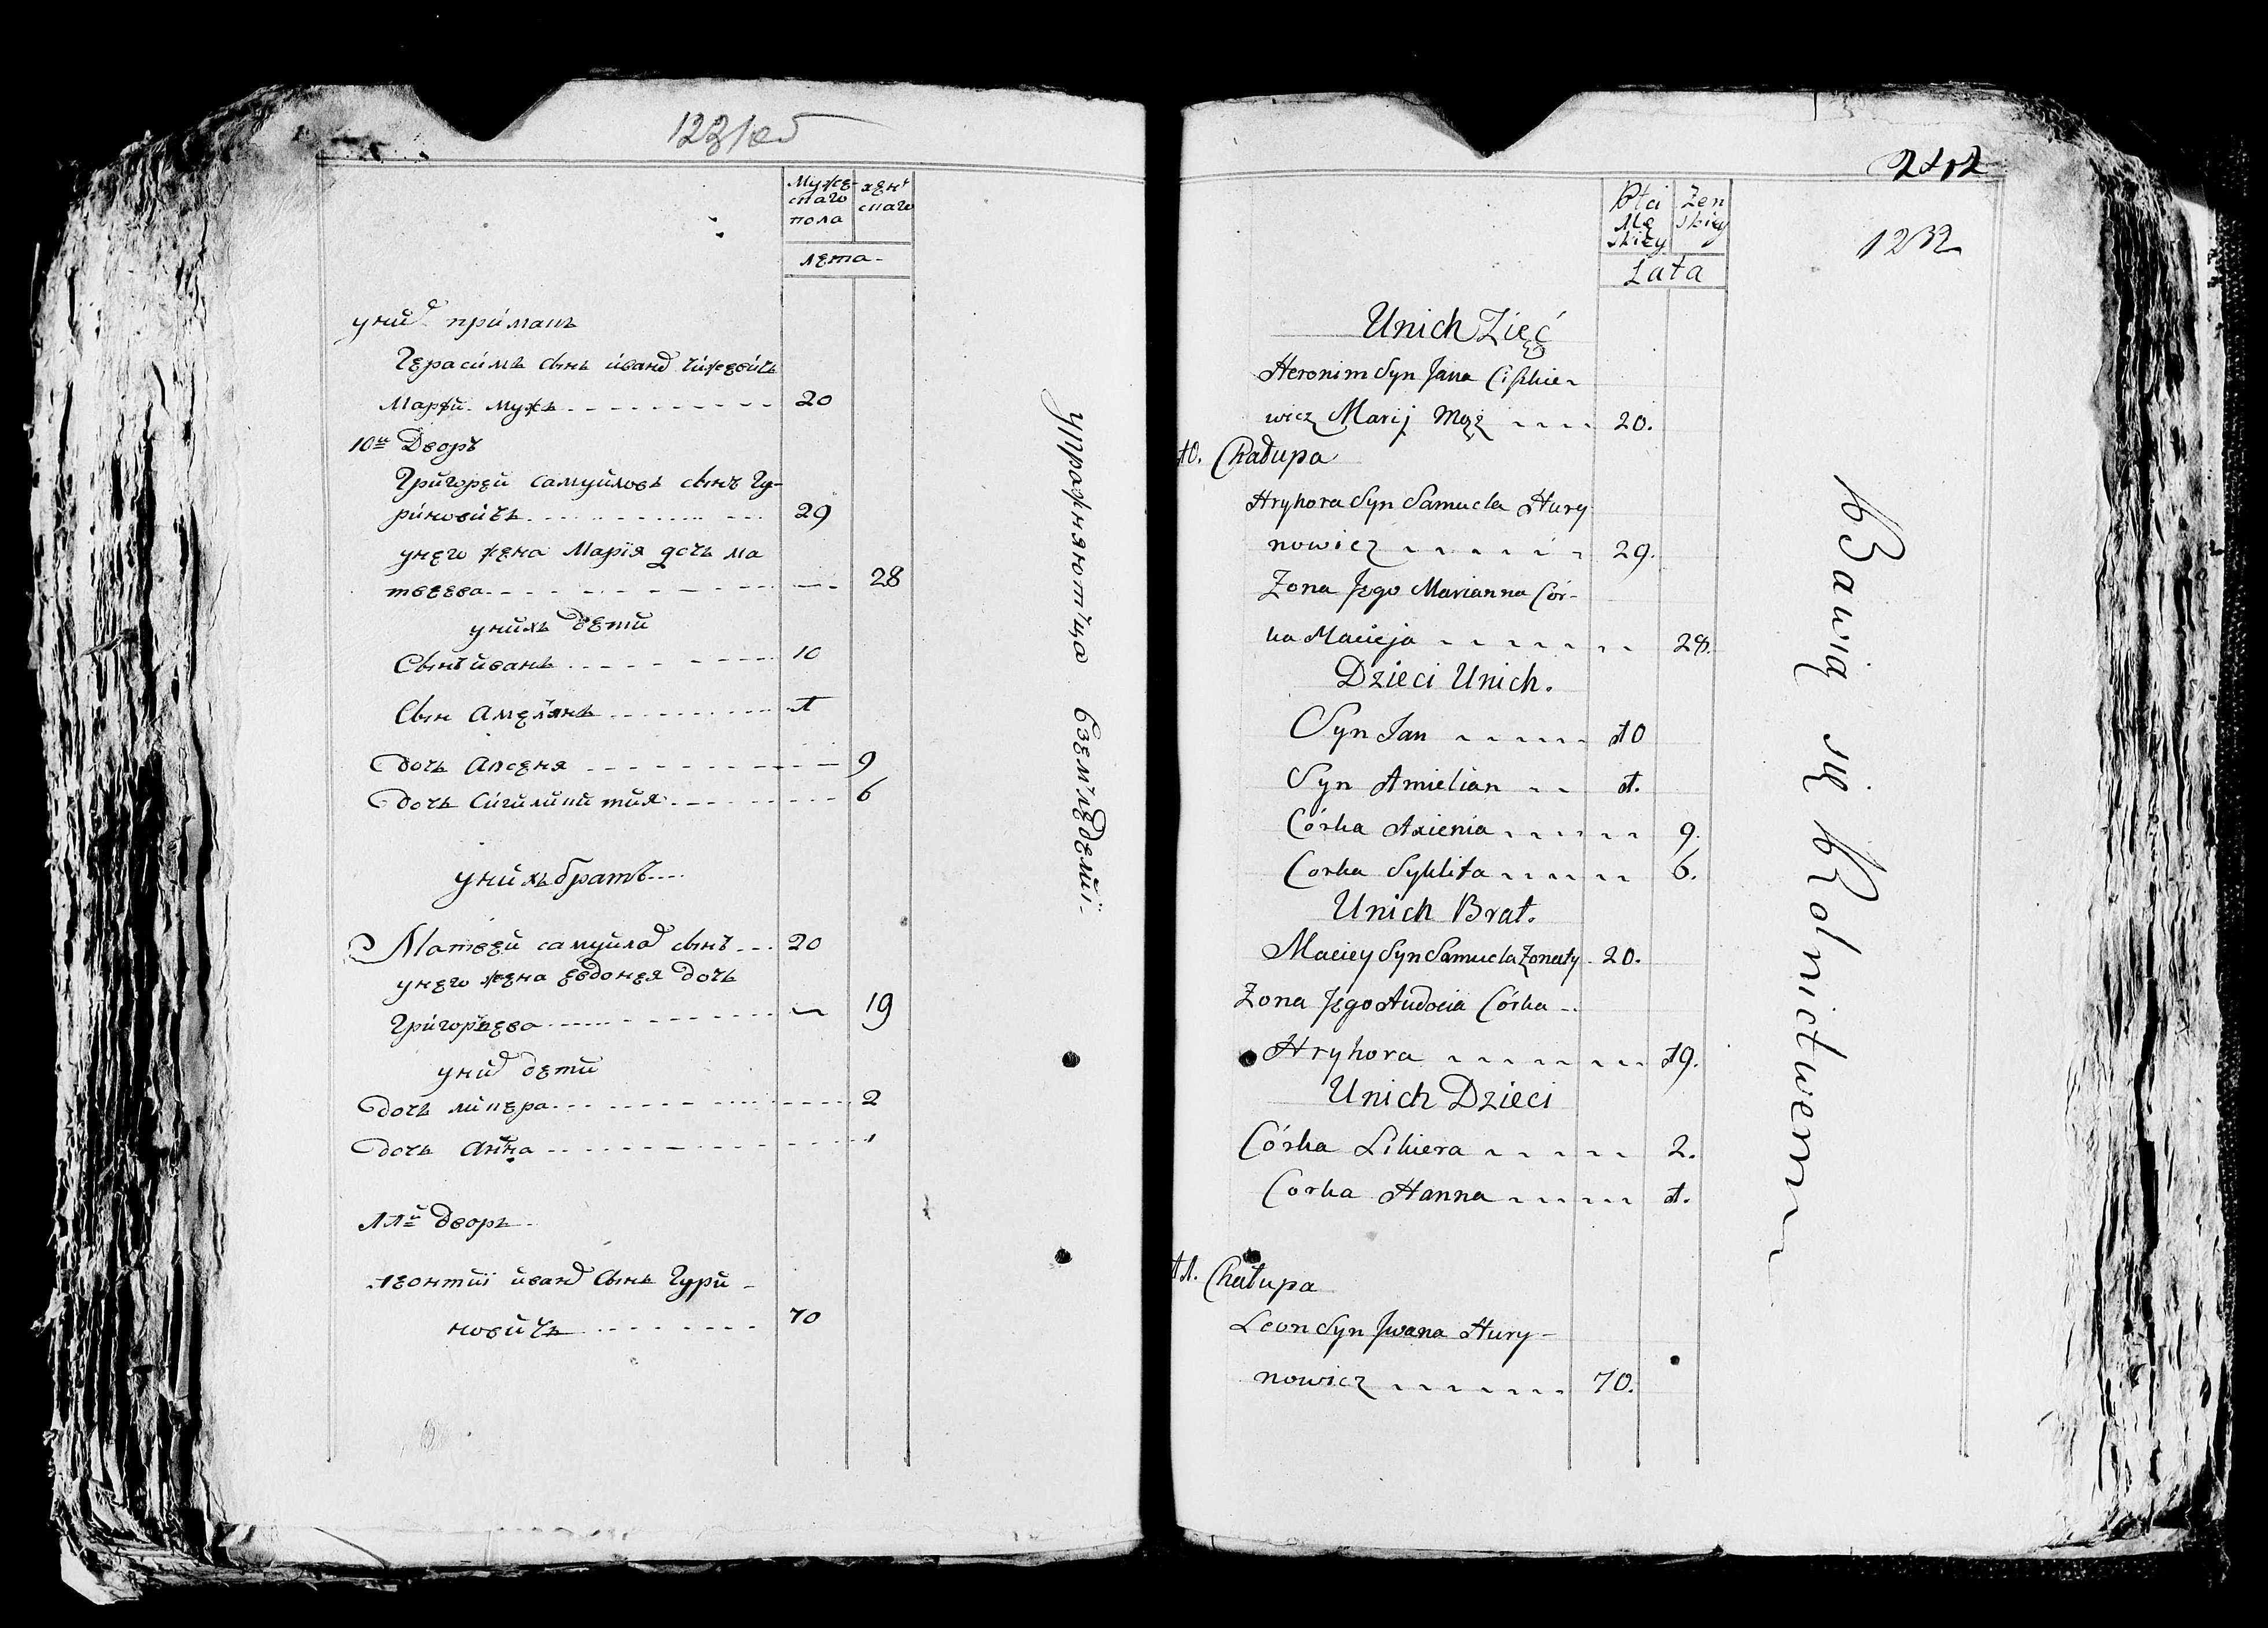 1231об
Муже- жен
скаго скаго
пола
лета
уних приманъ
Герасимъ сынъ иванов Чижевичъ
Марьи мужъ 20
10й Дворъ
Григорей самуйловъ сынъ Гу-
риновичъ 29
унего жена Марія дочь ма
твеева 28
унихъ дети
Сынъ иванъ 10
Сын Амелянъ 1
дочь Аксеня 9
дочь
6
унихъ братъ
Матвей самуйлов сынъ 20
унего жена евдокея дочь
Григорьева 19
уних дети
дочь ликера 2
дочь Анна 1
11й дворъ
Леонтий иванов сынъ Гури-
новичъ 70
упражняютца
вземледелии
2412
1232
Płci Zen
Mę skiey
skiey
Lata
Unich Zięć
Heronim Syn Jana
wicz Marij Mąż 20.
10. Chałupa
Hryhora Syn Samuela Hury
nowicz 29.
Zona Jego Marianna Cór-
ka Macieja 28.
Dzieci Unich.
Syn Jan 10
Syn Amielian 1.
Córka Axienia 9.
Corka Syklita 6.
Unich Brat.
Maciey Syn Samuela Zonaty 20.
Zona Jego Audocia Córka
Hryhora 19.
Unich Dzieci
Córka Likiera 2.
Corka Hanna 1.
11. Chałupa
Leon Syn Jwana Hury-
nowicz 70.
Bawią się Rolnictwem